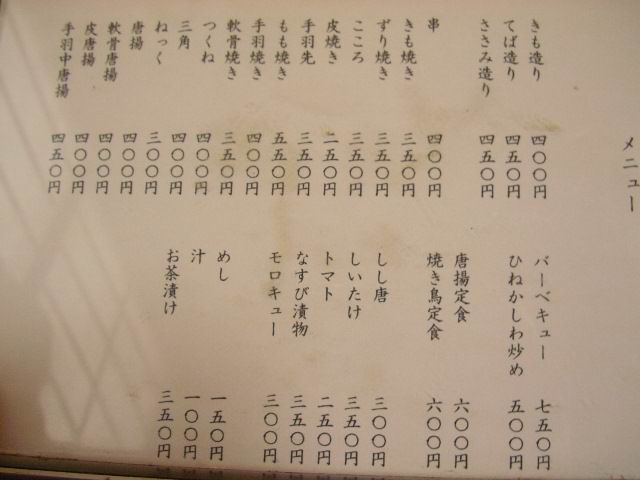 メニュー
きも造り 四〇〇円
てば造り 四五〇円
ささみ造り 四五〇円
串 四〇〇円
きも焼き 三五〇円
ずり焼き 三五〇円
こころ 三五〇円
皮焼き 二五〇円
手羽先 三五〇円
もも焼き 五五〇円
手羽焼き 四〇〇円
軟骨焼き 三五〇円
つくね 四〇〇円
三角 四〇〇円
ねっく 三〇〇円
唐揚 四〇〇円
軟骨唐揚 四〇〇円
皮唐揚 四〇〇円
手羽中唐揚 四五〇円
バーベキュー 七五〇円
ひねかしわ炒め 五〇〇円
唐揚定食 六〇〇円
焼き鳥定食 六〇〇円
しし唐 三〇〇円
しいたけ 三五〇円
トマト 二五〇円
なすび漬物 三五〇円
モロキュー 三〇〇円
めし 一五〇円
汁 一〇〇円
お茶漬け 三五〇円